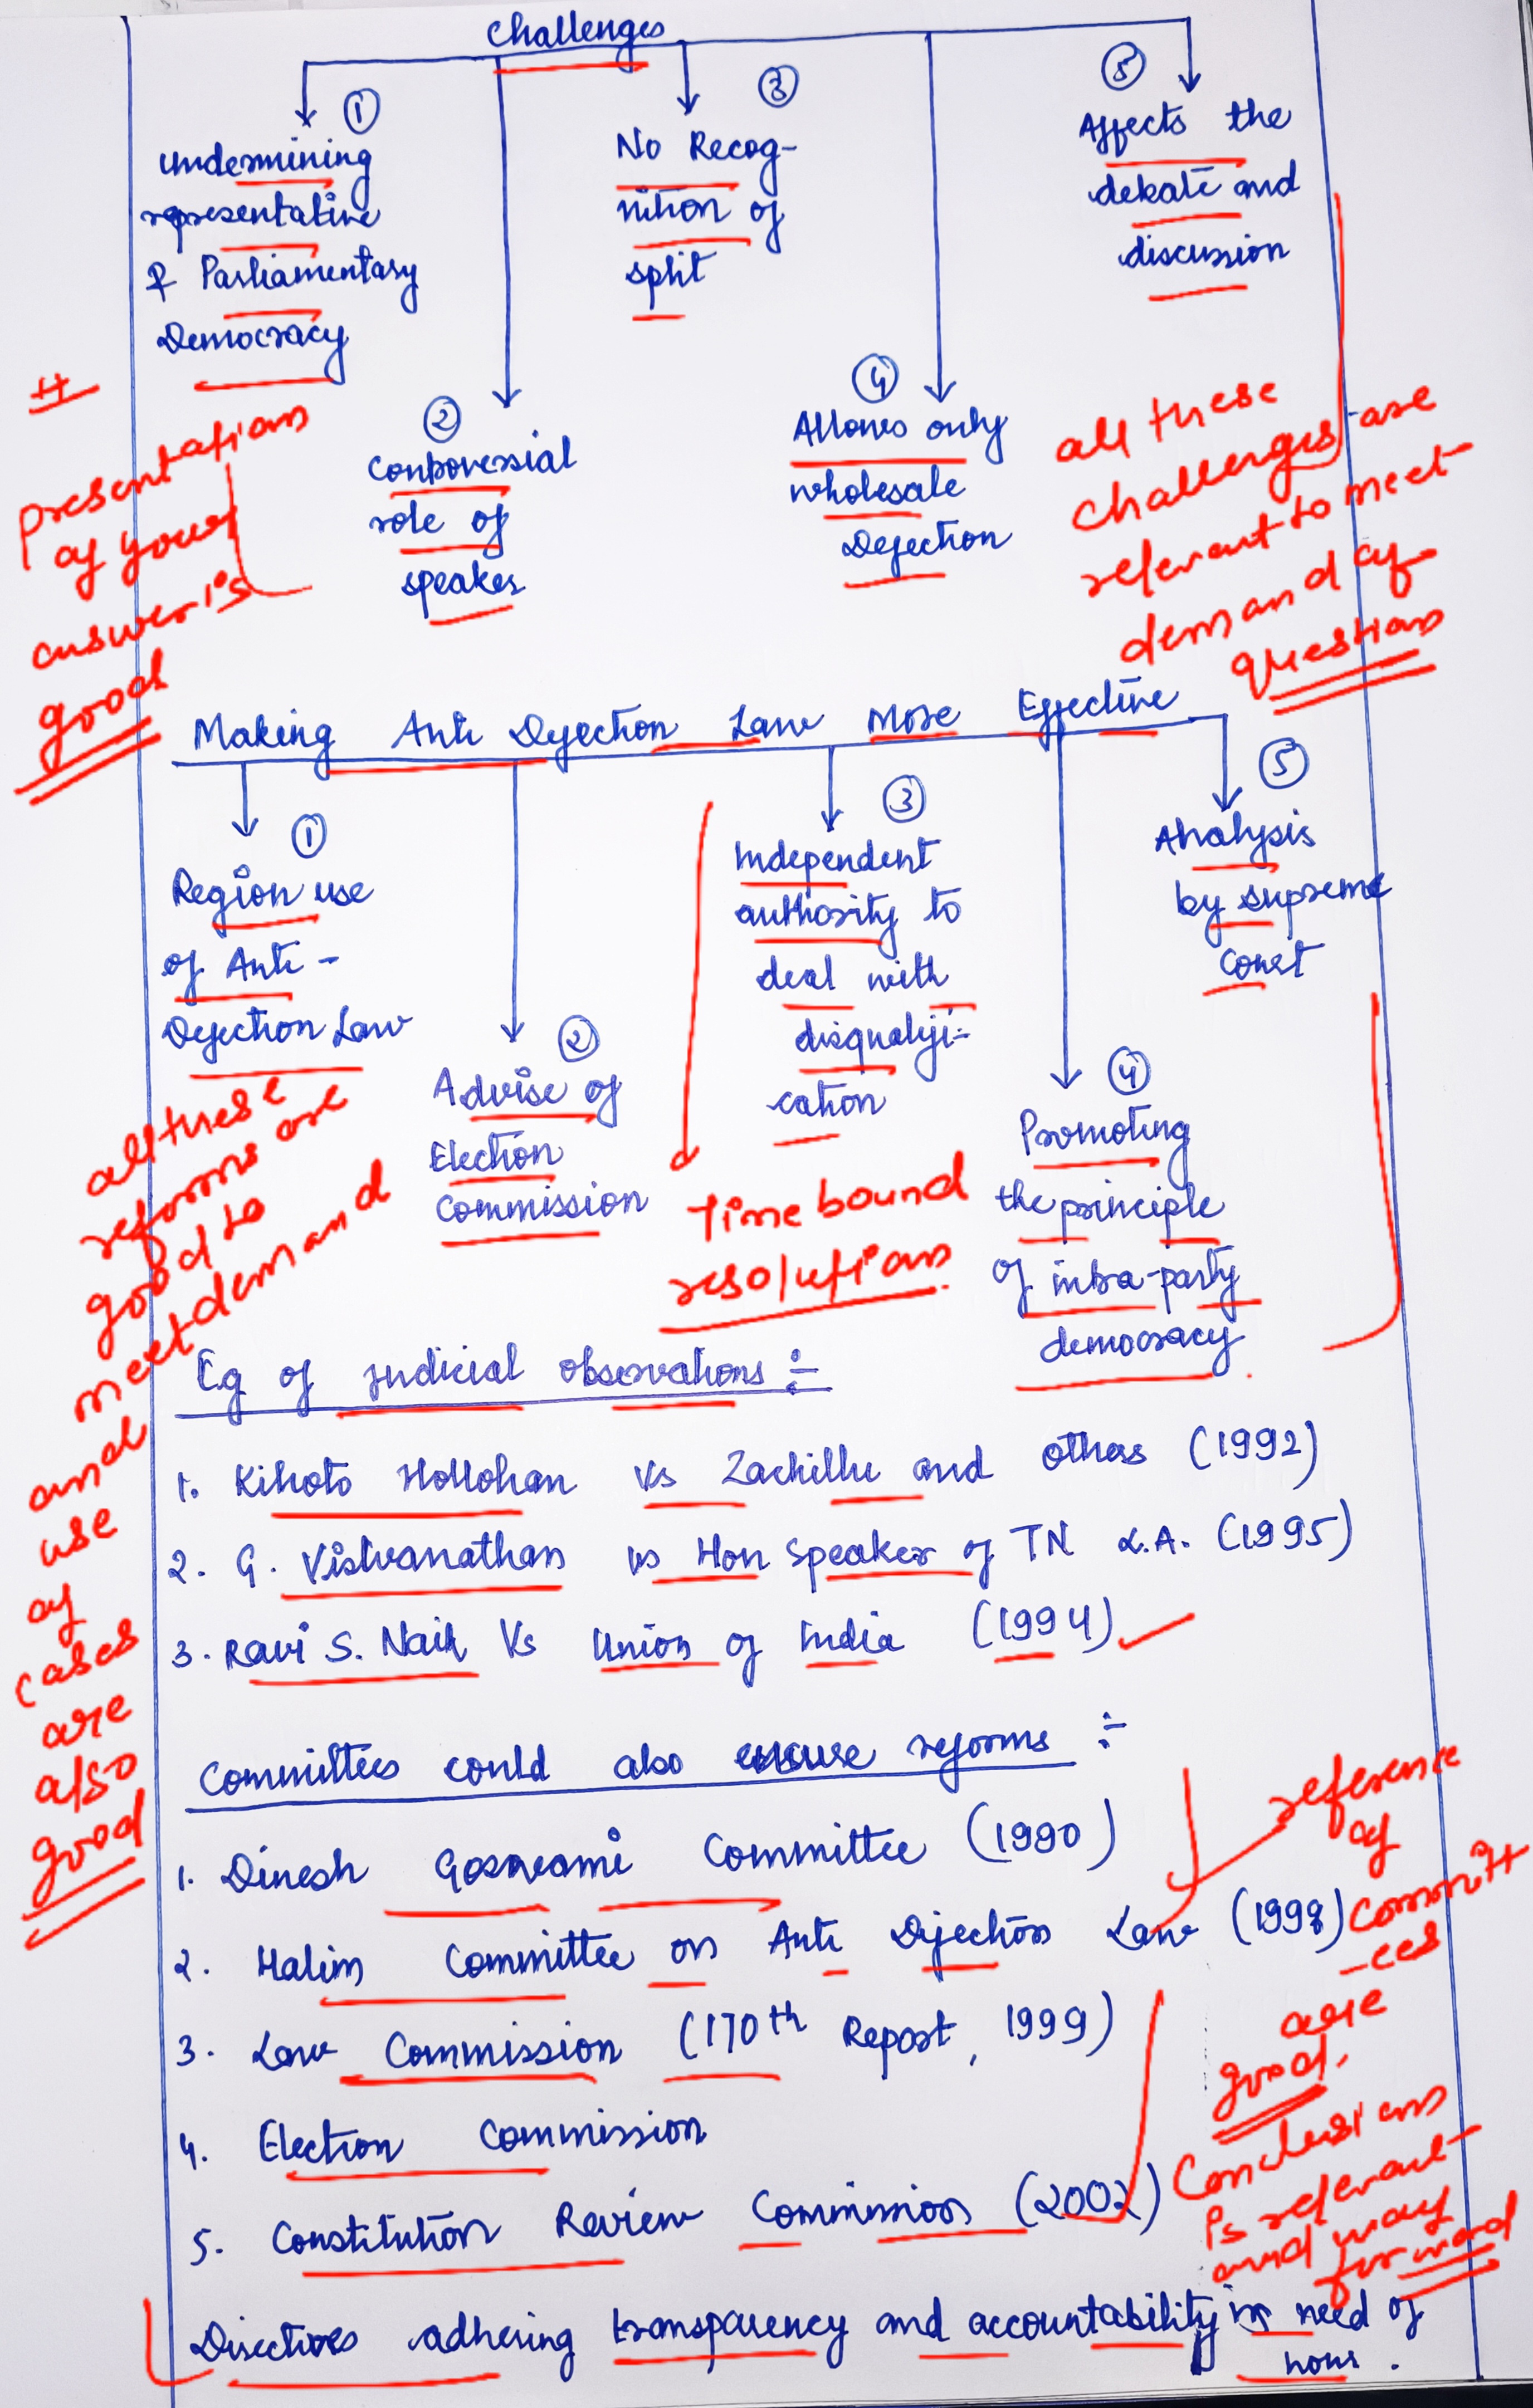 Challenges
①
Undermining
representative
& Parliamentary
Democracy
②
Controversial
role of
speaker
③
No Recog-
nition of
split
④
Allows only
wholesale
Defection
⑤
Affects the
debate and
discussion
#
presentation
of your
answer is
good
all these
challenges are
relevant to meet
demand of
question
Making Anti Defection Law More Effective
①
Region use
of Anti-
Defection Law
②
Advise of
Election
Commission
③
Independent
authority to
deal with
disqualifi-
cation
④
Promoting
the principle
of intra-party
democracy.
⑤
Analysis
by supreme
Court
Time bound
resolution
all these
reforms are
good to
meet demand
and
use
of
cases
are
also
good
Eg of judicial observations :-
1. Kihoto Hollohan Vs Zachillhu and others (1992)
2. G. Vishvanathan vs Hon Speaker of TN L.A. (1995)
3. Ravi S. Naik Vs Union of India (1994)
Committees could also ensure reforms :-
1. Dinesh Goswami Committee (1990)
2. Halim Committee on Anti Defection Law (1998)
3. Law Commission (170th Report, 1999)
4. Election Commission
5. Constitution Review Commission (2002)
reference
of
committ
-ees
are
good.
Conclusion
is relevant
and way
forward
Directives adhering transparency and accountability is need of
hour.